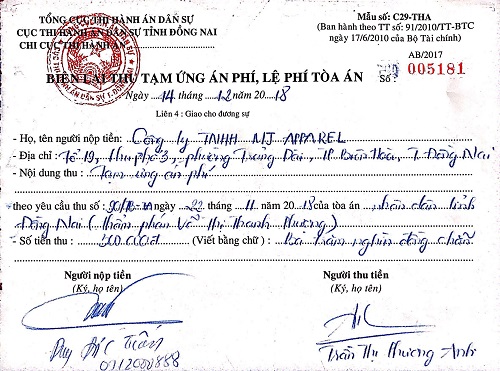 TỔNG CỤC THI HÀNH ÁN DÂN SỰ
CỤC THI HÀNH ÁN DÂN SỰ TỈNH ĐỒNG NAI
CHI CỤC THI HÀNH ÁN
Mẫu số: C29-THA
(Ban hành theo TT số: 91/2010/TT-BTC
ngày 17/6/2010 của Bộ Tài chính)
AB/2017
Số: 005181
BIÊN LAI THU TẠM ỨNG ÁN PHÍ, LỆ PHÍ TÒA ÁN
Ngày 14 tháng 12 năm 2018
Liên 4 : Giao cho đương sự
- Họ, tên người nộp tiền: Công ty TNHH MJ APPAREL
- Địa chỉ : Tổ 19, khu phố 3, phường Trảng Dài, TP. Biên Hòa, T. Đồng Nai
- Nội dung thu : Tạm ứng án phí
theo yêu cầu thu số : ngày 22 tháng 11 năm 2018 của tòa án nhân dân tỉnh
Đồng Nai (thẩm phán Võ Thị Thanh Phượng)
- Số tiền thu : 300.000đ (Viết bằng chữ) : Ba trăm nghìn đồng chẵn
Người nộp tiền
(Ký, họ tên)
Người thu tiền
(Ký, họ tên)
Trần Thị Phương Anh